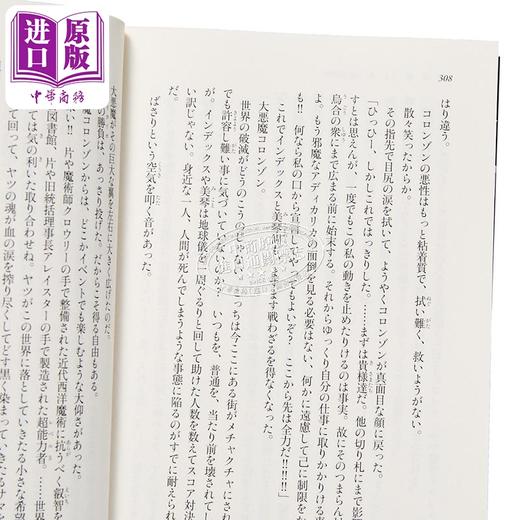 原版
进口
中華商務
308
はり違う。
コロンゾンの悪性はもっと粘着質で、拭い難く、救いようがない。
散々笑ったからか。
その指先で目尻の涙を拭いて、ようやくコロンゾンが真面目な顔に戻った。
「ひっひー、しかしこれではっきりした。……まずは貴様達だ。他の切り札にまで影
すとは思えんが、一度でもこの私の動きを止めたりけるのは事実。故にそのつまらん
烏合の衆にまで広まる前に始末する。それからゆっくり自分の仕事に取りかかりける事
よ。もう邪魔なアディカリカの面倒を見る必要はない、何かに遠慮して己に制限をか
も!! 何なら私の口から宣言し
もよいぞ? ここから先は全力だ!!!!!」
これでインデックスと美琴
ますます戦わざるを得なくなった。
大悪魔コロンゾン。
世界の破滅がどうのこうの
っちは今ここにある街がメチャクチャに
でも許容し難い事に気づいてな
いつもを、普通を、当たり前を壊されてし
が。インデックスや美琴は地球儀を一回ぐるりと回して助けた人数を数えてスコア対決
い訳じゃない。身近な一人、人間が死んでしまうような事態に陥るのがすでに耐えられ
だ。
ばさりという空気を叩く音があった。
大悪魔がその巨大な翼を左右に大きく広げたのだ。
の勝負は、あっさり投げた。だからこそ得る自由もある。
魔コロンゾンからは、どこかイベントでも楽しむような大仰さがあった。
!! 片や魔術師クロウリーの手で整備された近代西洋魔術に抗うべく叡智を
図書館、片や旧統括理事長アレイスターの手で製造された超能力者。……世界
ては気の利いた取り合わせね。ヤツがこの世界に落としていきたる小さな希望
て回って、ヤツの魂が血の涙を搾り尽くしてどす黒く染まっていきたるサマを